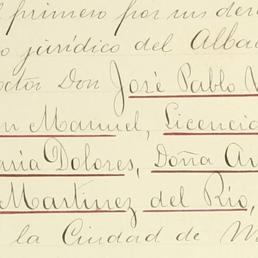 l primero por sus der
o jurídico del Alba
ctor Don José Pablo
n Manuel, Licencia
aría Dolores, Doña A
Martinez del Río,
la Ciudad de M